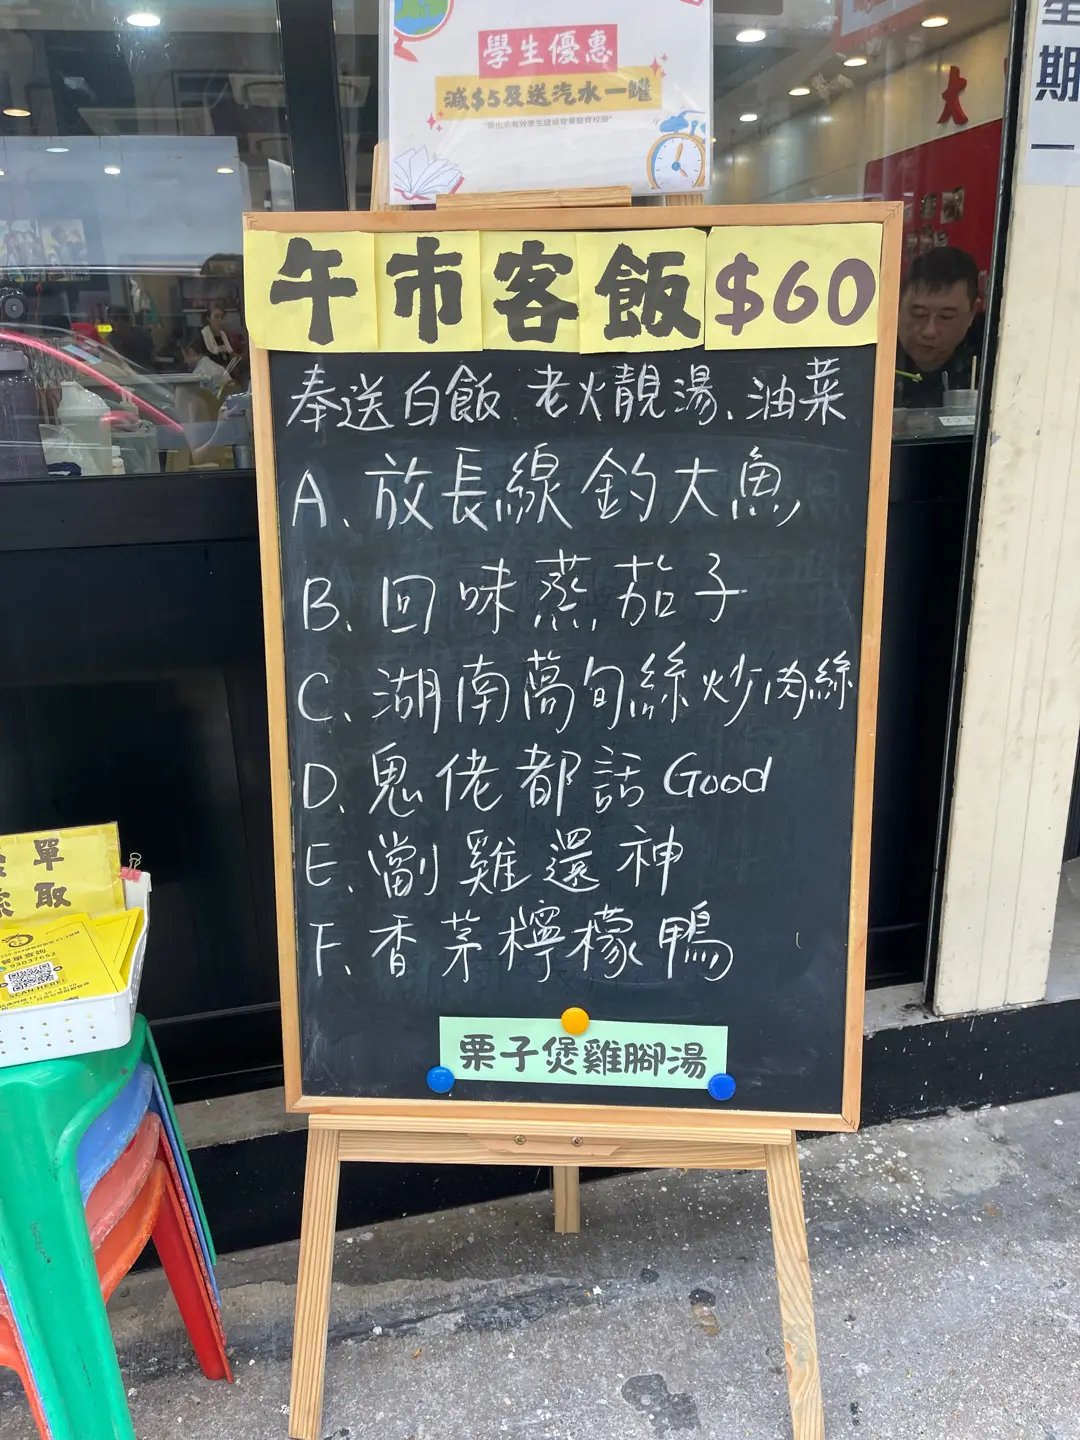 學生優惠
減$5及送汽水一罐
午市客飯$60
奉送白飯、老火靚湯、油菜
A、放長線釣大魚
B、回味蒸茄子
C、湖南萵旬絲炒肉絲
D、鬼佬都話Good
E、劏雞還神
F、香茅檸檬鴨
栗子煲雞腳湯
單
取
餐單查詢
93637652
SCAN HERE!
大
星
期
一